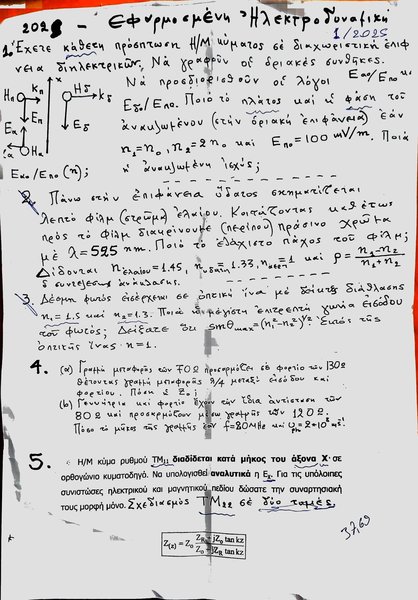 2025 - Εφυρμοσμένη Ηλεκτροδυναμική
1/2025
1. Έχετε κάθετη πρόσπτωση Η/Μ κύματος σέ διαχωριστική επιφ
νεια διηλεκτρικών. Νά γραφούν οἱ ὁριακές συνθῆκες.
Νά προσδιορισθοῦν οἱ λόγοι Eαο/Eπο καί
Eδο/Eπο. Ποιο τό πλάτος καί ἡ φάση τοῦ
ἀνακλωμένου (στήν ὁριακή ἐπιφάνεια) ἐάν
n₁=n₀, n₂=2n₀ καί Eπο=100 mV/m. Ποιά
ἡ ἀνακλωμένη ἰσχύς;
Kπ Hδ kδ x
Hπ Eπ Eδ
Eα Hα
Eαο/Eπο (n);
2. Πάνω στήν ἐπιφάνεια ὕδατος σχηματίζεται
λεπτό φίλμ (στρῶμα) ἐλαίου. Κοιτάζοντας καθέτως
πρός τό φίλμ διακρίνουμε (περίπου) πράσινο χρῶμα
μέ λ=525 nm. Ποιό τό ἐλάχιστο πάχος τοῦ φίλμ;
Δίδονται nελαίου=1.45, nυδατ=1.33, nαερ=1 καί ρ=(n₁-n₂)/(n₁+n₂)
ὁ συντελεστής ἀνάκλασης.
3. Δέσμη φωτός εἰσέρχεται σέ ὀπτική ἵνα μέ δείκτες διάθλασης
n₁=1.5 καί n₂=1.3. Ποιά ἡ μέγιστη ἐπιτρεπτή γωνία εἰσόδου
τοῦ φωτός; Δείξατε ὅτι sinθmax=(n₁²-n₂²)^1/2. Ἐκτός τῆς
ὀπτικῆς ἵνας n=1.
4. (α) Γραμμή μεταφορᾶς τῶν 70Ω προσαρμόζεται σέ φορτίο τῶν 130Ω
θέτοντας γραμμή μεταφορᾶς λ/4 μεταξύ εἰσόδου καί
φορτίου. Πόση ἡ Z₀;
(b) Γεννήτρια καί φορτίο ἔχουν τήν ἴδια ἀντίσταση τῶν
80Ω καί προσαρμόζουν μέσω γραμμῆς τῶν 120Ω.
Πόσο τό μῆκος τῆς γραμμῆς ἐάν f=80MHz καί υph=2*10⁸ m/s.
5. Η/Μ κύμα ρυθμού TM₁₁ διαδίδεται κατά μήκος του άξονα X σε
ορθογώνιο κυματοδηγό. Να υπολογισθεί αναλυτικά η Ez. Για τις υπόλοιπες
συνιστώσες ηλεκτρικού και μαγνητικού πεδίου δώσατε την συναρτησιακή
τους μορφή μόνο. Σχεδιασμός TM₂₂ σέ δύο τομές.
37,69
Z(z) = Z₀ (ZR + jZ₀ tan kz)/(Z₀ + jZR tan kz)